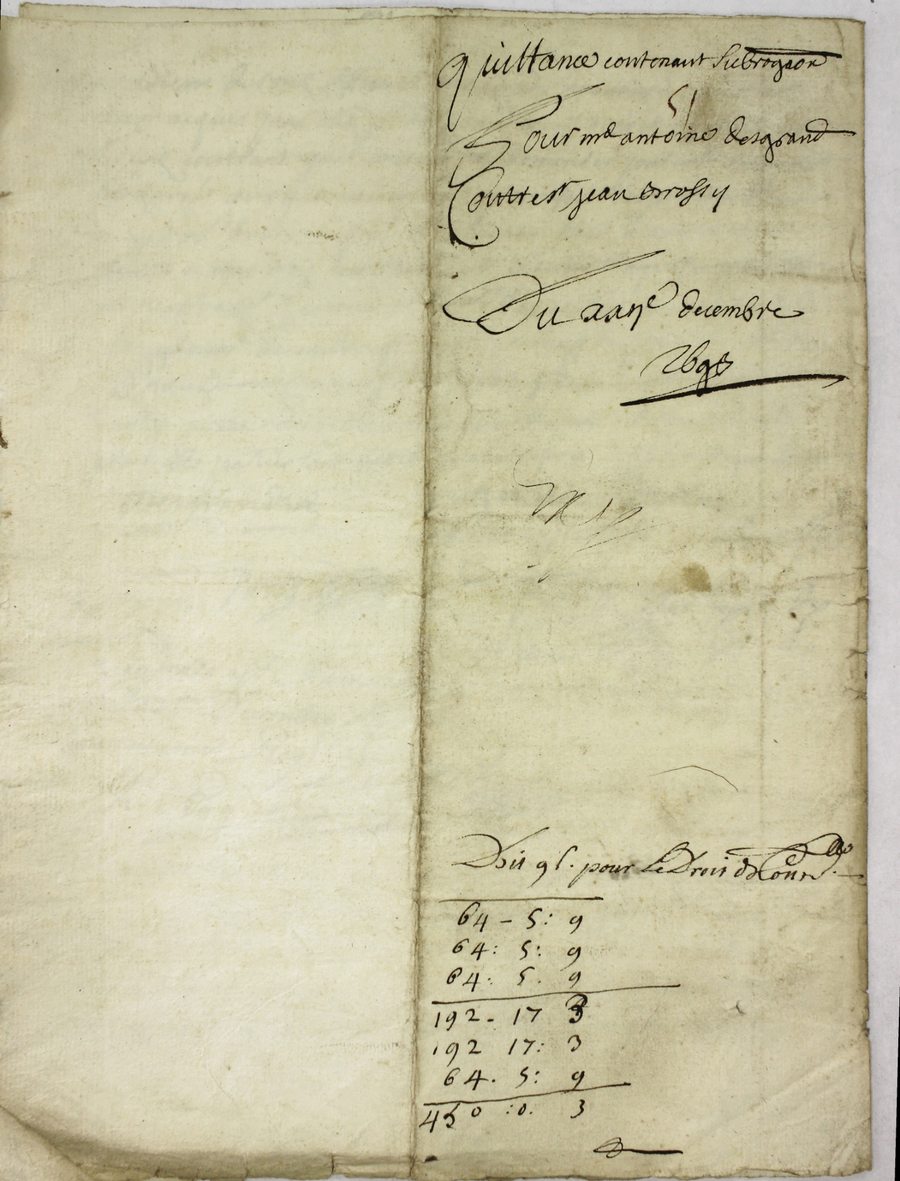 quittance contenant subrogaon
51
Pour md antoine desgrand
Contre sr jean brossy
Du xxije decembre
1698
Doit 9 s. pour le Droit de
64 - 5: 9
64: 5: 9
64: 5. 9
192 - 17 3
192 17: 3
64. 5: 9
450 :0. 3